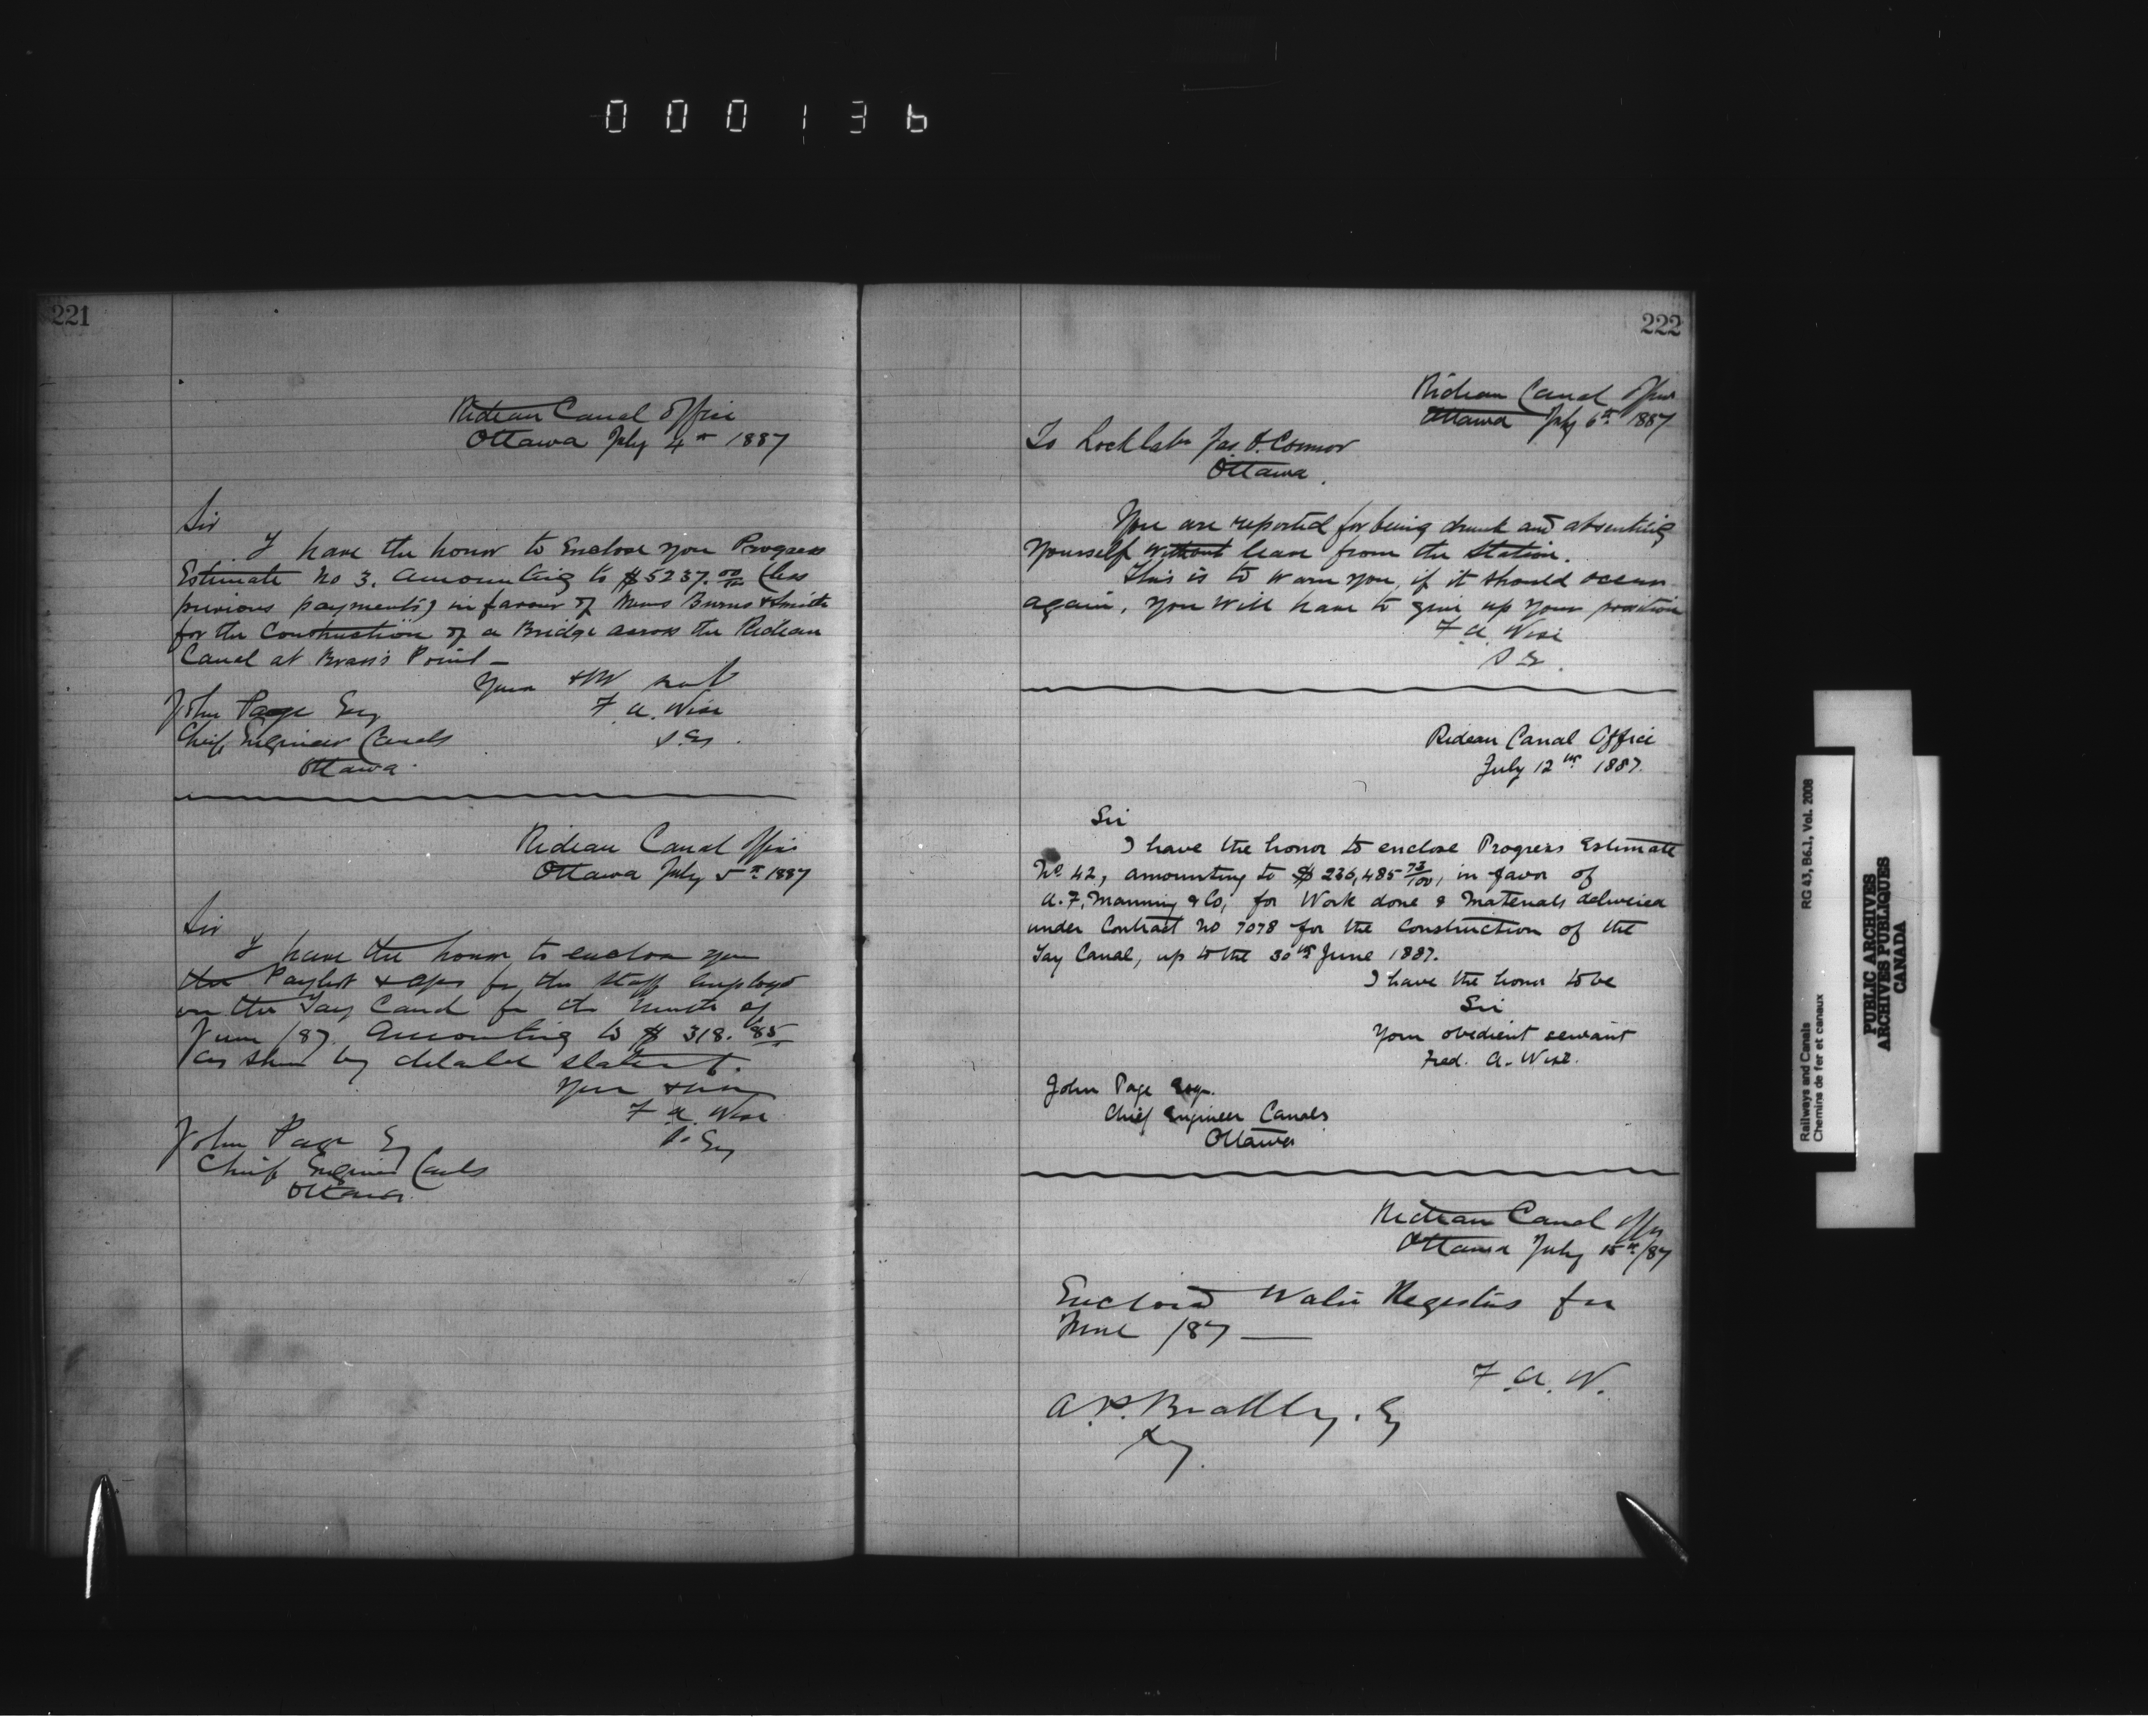 000136
221
Rideau Canal Office
Ottawa July 4th 1887
Sir
I have the honor to Enclose you Progress
Estimate No 3. amounting to $5237.00/100 (less
previous payments) in favour of Messrs Burns & Smith
for the Construction of a Bridge across the Rideau
Canal at Brass's Point -
Your
F. A. Wise
S. Eg.
John Page Esq
Chief Engineer Canals
Ottawa.
Rideau Canal Office
Ottawa July 5th 1887
Sir
I have the honor to enclose you
the Paylist & a/cs for the staff employed
on the Tay Canal for the month of
June /87. Amounting to $ 318.85
as shown by detailed statement.
Your
F. A. Wise
S. Eg
John Page Esq
Chief Engineer Canals
Ottawa.
222
Rideau Canal Office
Ottawa July 6th 1887
To Lock Labr Jas. O.Connor
Ottawa.
You are reported for being drunk and absenting
yourself without leave from the Station.
This is to warn you, if it should occur
again, you will have to give up your position
F. A. Wise
S. E.
Rideau Canal Office
July 12th 1887.
Sir
I have the honor to enclose Progress Estimate
No 42, amounting to $ 236,485 73/100, in favor of
A. F. Manning & Co, for Work done & Materials delivered
under Contract No 7078 for the Construction of the
Tay Canal, up to the 30th June 1887.
I have the honor to be
Sir
Your obedient servant
Fred. A. Wise.
John Page Esqr.
Chief Engineer Canals
Ottawa
Rideau Canal Office
Ottawa July 15th /87
Enclosed Water Registers for
June /87 —
F. A. W.
A. P. Bradley. Esq
Secy.
Railways and Canals RG 43, B6.1, Vol. 2008
Chemins de fer et canaux
PUBLIC ARCHIVES
ARCHIVES PUBLIQUES
CANADA